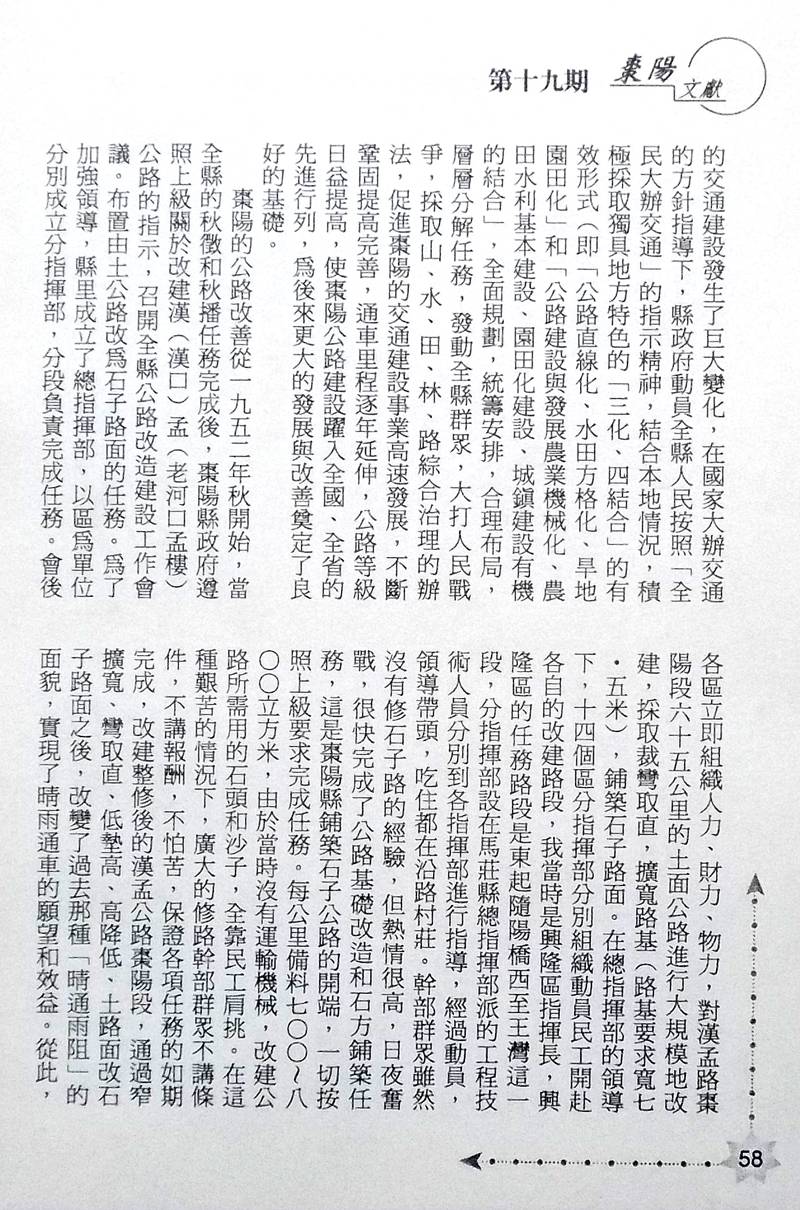 第十九期
棗陽
文獻
的交通建設發生了巨大變化，在國家大辦交通
的方針指導下，縣政府動員全縣人民按照「全
民大辦交通」的指示精神，結合本地情況，積
極採取獨具地方特色的「三化、四結合」的有
效形式（即「公路直線化、水田方格化、旱地
園田化」和「公路建設與發展農業機械化、農
田水利基本建設、園田化建設、城鎮建設有機
的結合」，全面規劃，統籌安排，合理布局，
層層分解任務，發動全縣群眾，大打人民戰
爭，採取山、水、田、林、路綜合治理的辦
法，促進棗陽的交通建設事業高速發展，不斷
鞏固提高完善，通車里程逐年延伸，公路等級
日益提高，使棗陽公路建設躍入全國、全省的
先進行列，爲後來更大的發展與改善奠定了良
好的基礎。
棗陽的公路改善從一九五二年秋開始，當
全縣的秋徵和秋播任務完成後，棗陽縣政府遵
照上級關於改建漢（漢口）孟（老河口孟樓）
公路的指示，召開全縣公路改造建設工作會
議。布置由土公路改爲石子路面的任務。爲了
加強領導，縣里成立了總指揮部，以區爲單位
分別成立分指揮部，分段負責完成任務。會後
各區立即組織人力、財力、物力，對漢孟路棗
陽段六十五公里的土面公路進行大規模地改
建，採取裁彎取直，擴寬路基（路基要求寬七
·五米），鋪築石子路面。在總指揮部的領導
下，十四個區分指揮部分別組織動員民工開赴
各自的改建路段，我當時是興隆區指揮長，興
隆區的任務路段是東起隨陽橋西至王灣這一
段，分指揮部設在馬莊縣總指揮部派的工程技
術人員分別到各指揮部進行指導，經過動員，
領導帶頭，吃住都在沿路村莊。幹部群眾雖然
沒有修石子路的經驗，但熱情很高，日夜奮
戰，很快完成了公路基礎改造和石方鋪築任
務，這是棗陽縣鋪築石子公路的開端，一切按
照上級要求完成任務。每公里備料七〇〇～八
〇〇立方米，由於當時沒有運輸機械，改建公
路所需用的石頭和沙子，全靠民工肩挑。在這
種艱苦的情況下，廣大的修路幹部群眾不講條
件，不講報酬，不怕苦，保證各項任務的如期
完成，改建整修後的漢孟公路棗陽段，通過窄
擴寬、彎取直、低墊高、高降低、土路面改石
子路面之後，改變了過去那種「晴通雨阻」的
面貌，實現了晴雨通車的願望和效益。從此，
58